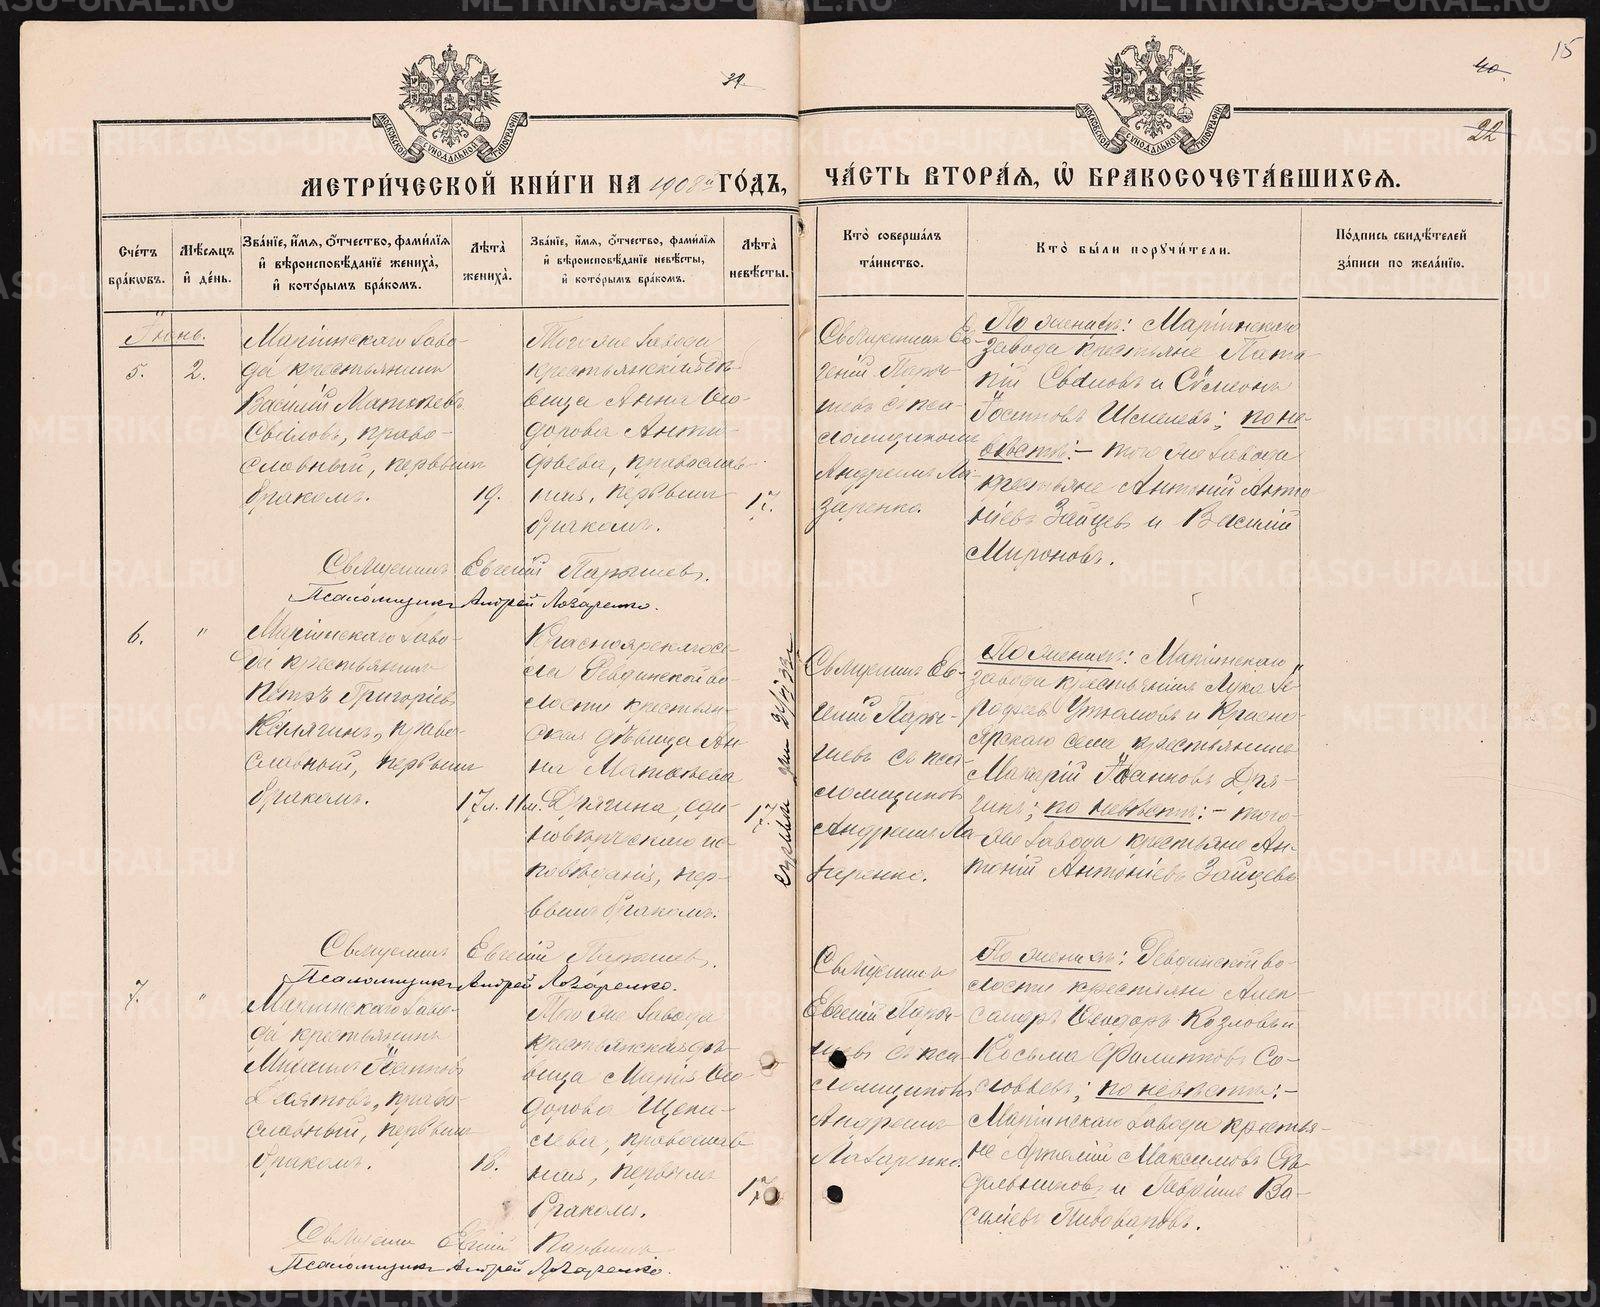 39.
40.
15
22
МОСКОВСКОЙ СѴНОДАЛЬНОЙ ТИПОГРАФІИ
МОСКОВСКОЙ СѴНОДАЛЬНОЙ ТИПОГРАФІИ
МЕТРИ́ЧЕСКОЙ КНИ́ГИ НА 1908й ГО́ДЪ,
ЧА́СТЬ ВТОРА́Я, Ѡ҆ БРАКОСОЧЕТА́ВШИХСЯ.
Сче́тъ бра́ковъ.
Мѣ́сяцъ и҆ де́нь.
Зва́нїе, и҆́мя, ѻ҆́тчество, фами́лїя
и҆ вѣроисповѣ́данїе жениха̀,
и҆ кото́рымъ бра́комъ.
Лѣта̀ жениха̀.
Зва́нїе, и҆́мя, ѻ҆́тчество, фами́лїя
и҆ вѣроисповѣ́данїе невѣ́сты,
и҆ кото́рымъ бра́комъ.
Лѣта̀ невѣ́сты.
Кто̀ соверша́лъ
та́инство.
Кто̀ бы́ли поручи́тели.
По́дпись свидѣ́телей
за́писи по жела́нїю.
Іюнь.
5.
2.
Маріинскаго заво-
да крестьянинъ
Василій Матѳѣевъ
православный, первымъ
бракомъ.
19.
Того же завода
крестьянская дѣ-
вица Анна Ѳео-
дорова Анти-
православ-
ная, первымъ
бракомъ.
17.
Священникъ Ев-
геній Пары-
шевъ съ пса-
ломщикомъ
Андреемъ Ла-
заренко.
По женихѣ: Маріинскаго
завода крестьяне
и Сѵмеонъ
по не-
вѣстѣ: – того же завода
крестьяне Антоній Анто-
ніевъ Зайцевъ и Василій
Мироновъ.
Священникъ Евгеній Парышевъ.
Псаломщикъ Андрей Лазаренко.
6.
"
Маріинскаго заво-
да крестьянинъ
Петръ Григоріевъ
право-
славный, первымъ
бракомъ.
17 л. 11 м.
Красноярскаго се-
ла Ревдинской во-
лости крестьян-
ская дѣвица Ан-
на Матѳѣева
Дрягина, еди-
новѣрческаго ис-
повѣданія, пер-
вымъ бракомъ.
17.
Священникъ Ев-
геній Пары-
шевъ съ пса-
ломщикомъ
Андреемъ Ла-
заренко.
По женихѣ: Маріинскаго
завода крестьянинъ Лука
и Красно-
ярскаго села крестьянинъ
Макарій Іоанновъ Дря-
гинъ; по невѣстѣ: – того-
же завода крестьяне Ан-
тоній Антоніевъ Зайцевъ
Священникъ Евгеній Парышевъ.
Псаломщикъ Андрей Лазаренко.
7.
"
Маріинскаго заво-
да крестьянинъ
Михаилъ Іоанновъ
право-
славный, первымъ
бракомъ.
18.
Того же завода
крестьянская дѣ-
вица Марія Ѳео-
дорова
православ-
ная, первымъ
бракомъ.
17.
Священникъ
Евгеній Пары-
шевъ съ пса-
ломщикомъ
Андреемъ
Лазаренко.
По женихѣ: Ревдинской во-
лости крестьяне Алек-
сандръ Ѳеодоръ Козловъ и
Косьма Филипповъ Со-
ловьевъ; по невѣстѣ: –
Маріинскаго завода крестья-
не Максимовъ
и Гавріилъ Ва-
силіевъ Пивоваровъ.
Священникъ Евгеній Парышевъ
Псаломщикъ Андрей Лазаренко.
METRIKI.GASO-URAL.RU